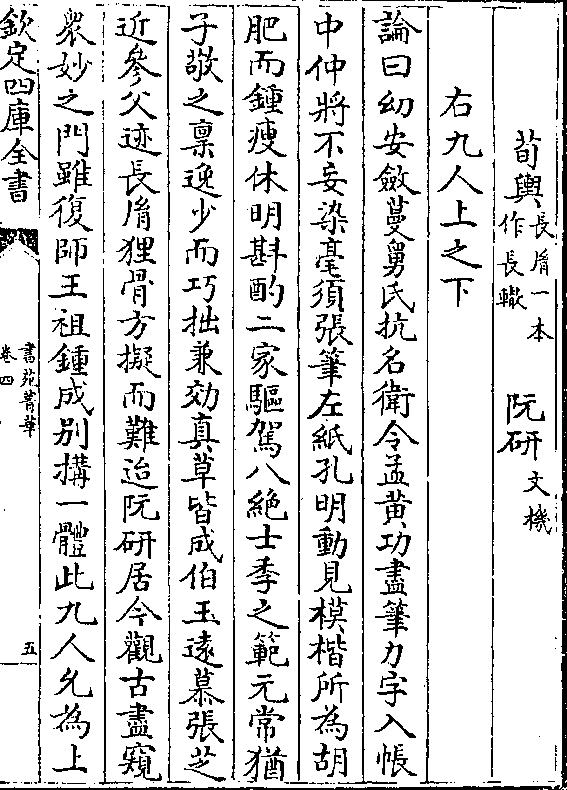 荀輿長胤一本作長轍　阮研文機
右九人上之下
論曰幼安斂蔓舅氏抗名衛令孟黃功盡筆力字入帳
中仲將不妄染毫須張筆左紙孔明動見模楷所為胡
肥而鍾瘦休明斟酌二家驅駕八絶士季之範元常猶
子敬之禀逸少而巧拙兼効真草皆成伯玉逺慕張芝
近參父迹長胤狸骨方擬而難迨阮研居今觀古盡窺
衆妙之門雖復師王祖鍾成别搆一體此九人允為上
欽定四庫全書
書苑菁華
卷四
五